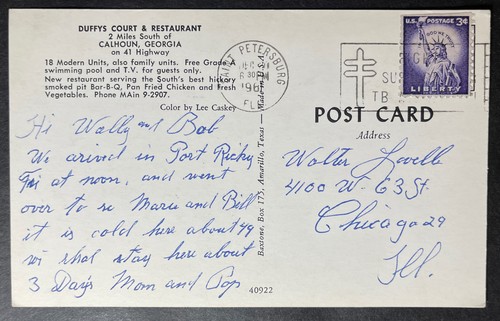 DUFFYS COURT & RESTAURANT
2 Miles South of
CALHOUN, GEORGIA
on 41 Highway
18 Modern Units, also family units. Free Grade A
swimming pool and T.V. for guests only.
New restaurant serving the South's best hickory
smoked pit Bar-B-Q, Pan Fried Chicken and Fresh
Vegetables. Phone MAin 9-2907.
Color by Lee Caskey
Hi Wally and Bob
We arived in Port Richy
Fri at noon, and went
over to se Marie and Bill
it is cold here about 49
wi shal stay here about
3 Days Mom and Pop
40922
Baxtone, Box 175, Amarillo, Texas — Made in U.S.A.
SAINT PETERSBURG
630
196
FL
TB
U.S. POSTAGE 3¢
IN GOD WE TRUST
LIBERTY
POST CARD
Address
Walter Lovelle
4100 W- 63. St
Chicago 29
Ill.